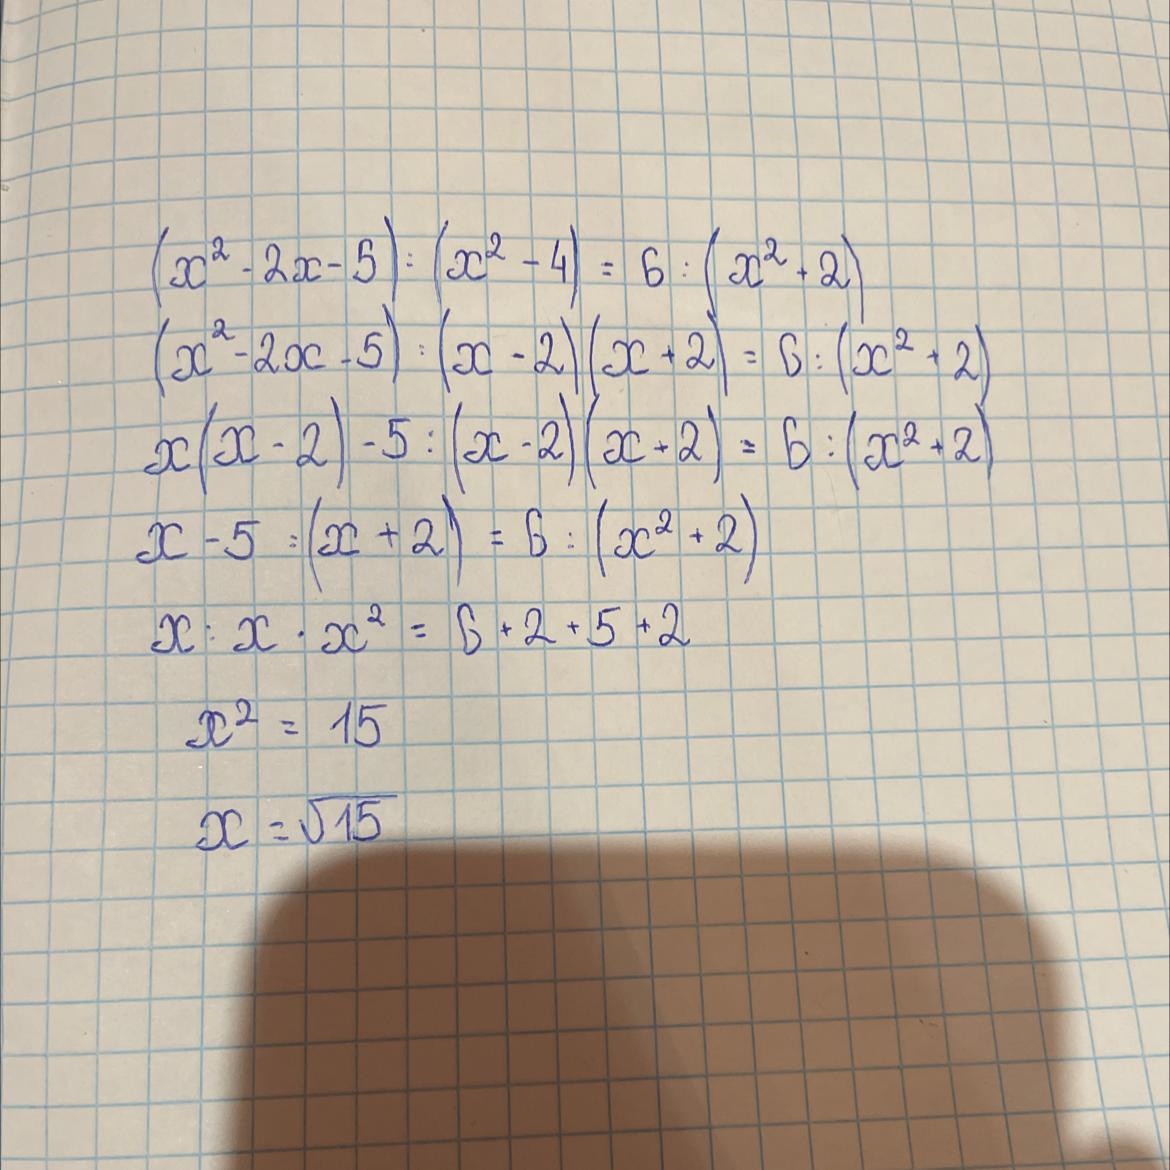 (x² - 2x - 5) : (x² - 4) = 6 : (x² + 2)
(x² - 2x - 5) : (x - 2)(x + 2) = 6 : (x² + 2)
x(x - 2) - 5 : (x - 2)(x + 2) = 6 : (x² + 2)
x - 5 : (x + 2) = 6 : (x² + 2)
x : x · x² = 6 + 2 + 5 + 2
x² = 15
x = √15